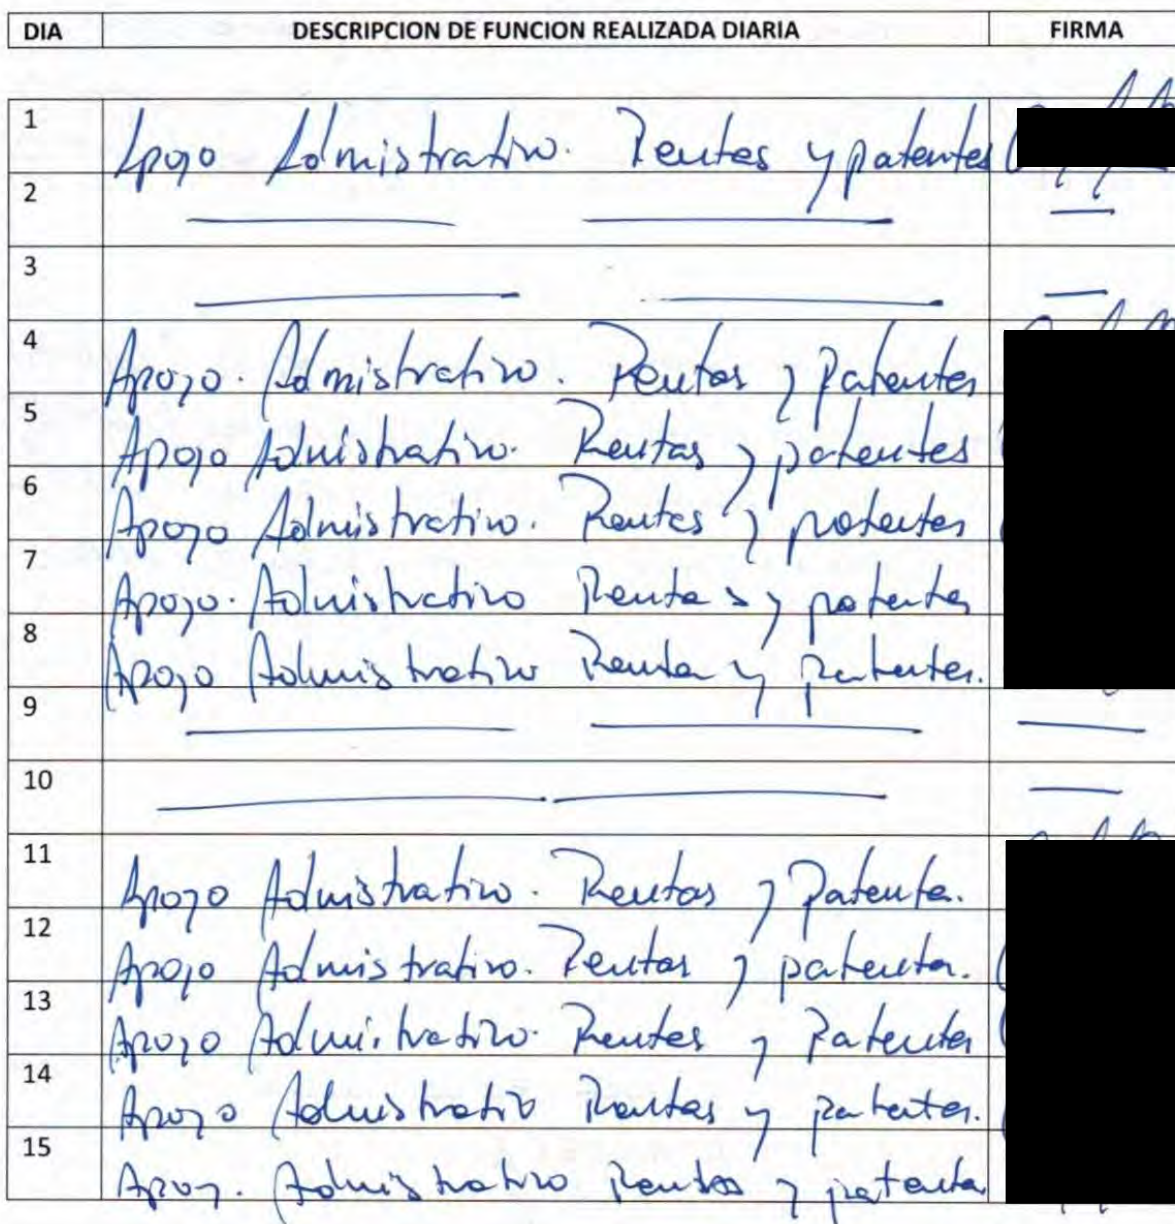 DIA DESCRIPCION DE FUNCION REALIZADA DIARIA FIRMA
1 Apoyo Admistrativo. Rentas y patentes
2
3
4 Apoyo. Admistrativo. Rentas y Patentes
5 Apoyo Admistrativo. Rentas y patentes
6 Apoyo Admistrativo. Rentas y patentes
7 Apoyo. Admistrativo Rentas y patentes
8 Apoyo Admistrativo Renta y patentes.
9
10
11 Apoyo Admistrativo. Rentas y Patente.
12 Apoyo Admistrativo. Rentas y patentes.
13 Apoyo Admistrativo. Rentas y Patentes
14 Apoyo Admistrativo Rentas y patentes.
15 Apoyo. Admistrativo Rentas y patentes